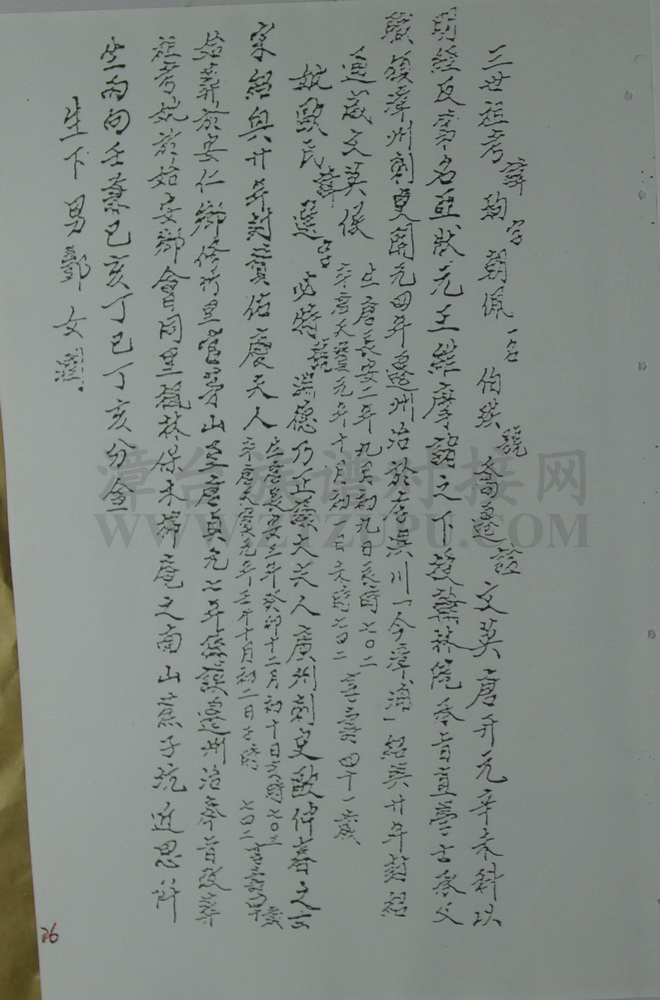 三世祖考諱珦字朝佩一名伯璵號喬遠諡文英唐开元辛未科以
明經及第名亞狀元王維摩詰之下授翰林院承旨直學士承父
職領漳州刺史開元四年遷州治於李澳川「今漳浦」紹興廿年封
追 文英侯 生唐長安二年九月初九日亥時七〇二
卒唐天寶元年十月初二日未時七四二 享壽四十一歲
妣歐氏諱 字 號淑德乃正議大夫人廣州刺史歐仲春之女
宋紹興廿年封 佑慶夫人 生唐長安三年癸卯十二月初十日亥時七〇三
卒唐天寶元年壬午十月初二日子時 七四二 享壽四十歲
始葬於安仁鄉修竹里 山至唐貞元七年係 遷州治奉旨改葬
祖考妣於始安鄉會同里 林保禾 庵之南山 子坑 坐
坐丙向壬兼巳亥丁巳丁亥分金
生下男酆女潤
26
漳台族谱对接网
WWW.ZTZUPU.COM